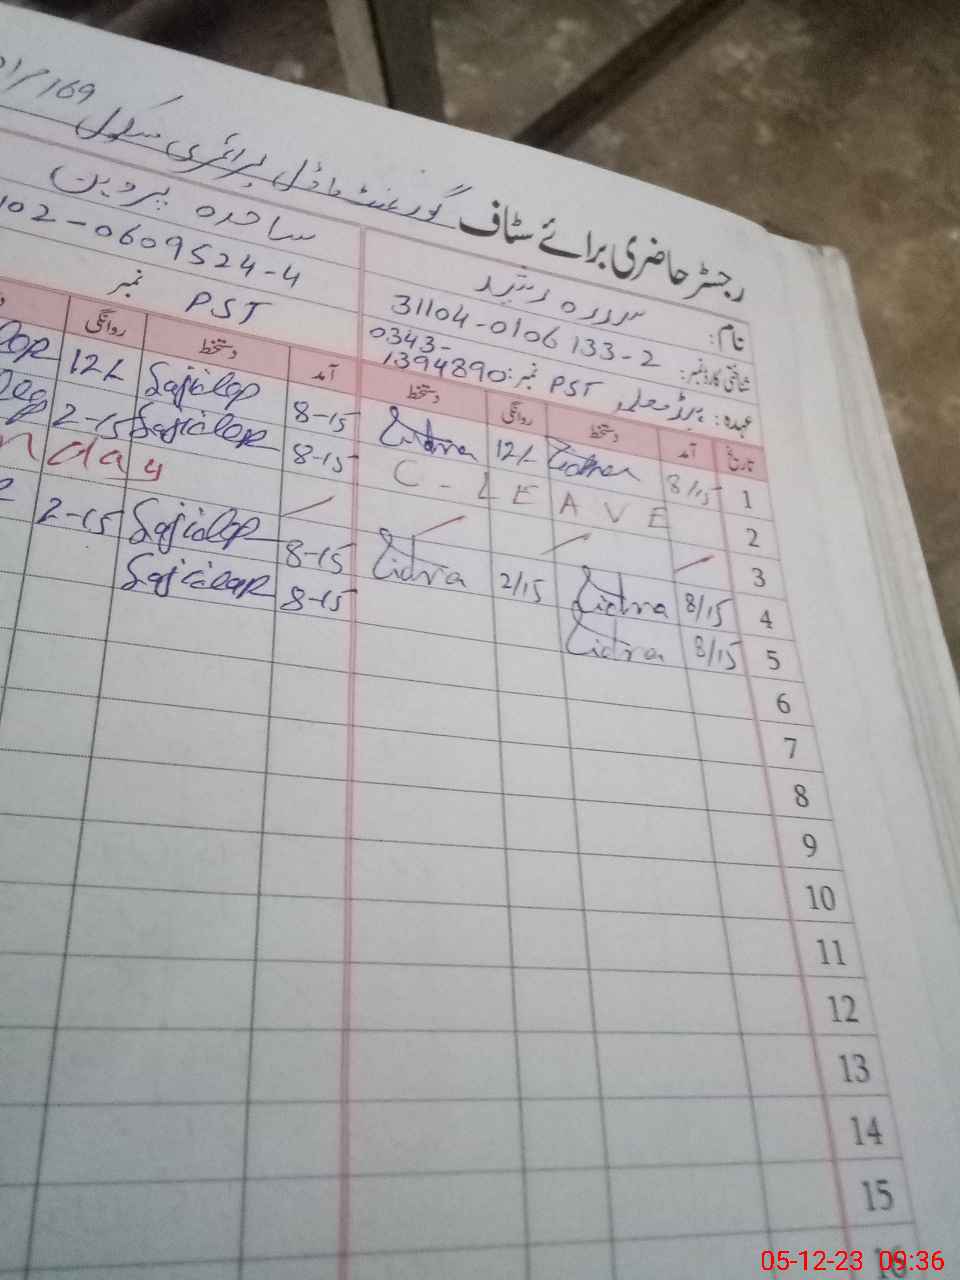 رجسٹر حاضری برائے سٹاف گورنمنٹ ماڈل پرائمری سکول 169/
نام: سدرہ رشید ساجدہ پروین
شناختی کارڈ نمبر: 31104-0106133-2 102-0609524-4
عہدہ: ہیڈ معلمہ PST نمبر: 0343-1394890 PST نمبر
تاریخ آمد دستخط روانگی دستخط آمد دستخط روانگی
1 8/15 Sidra 12/- Sidra 8-15 Sajidap 12/-
2 C-LEAVE 8-15 Sajidap 2-15
3 nday
4 8/15 Sidra 2/15 Sidra 8-15 Sajidap 2-15
5 8/15 Sidra 8-15 Sajidap
6
7
8
9
10
11
12
13
14
15
16
05-12-23 09:36